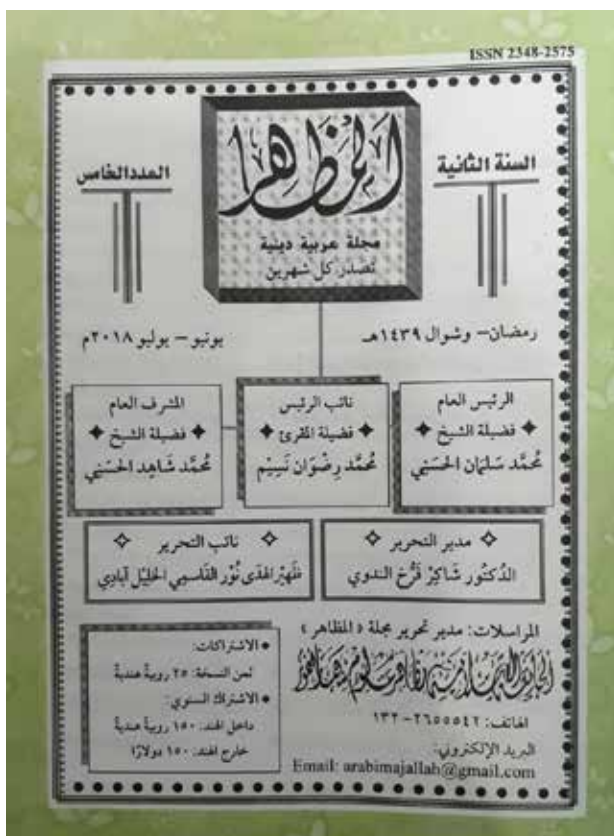 ISSN 2348-2575
السنة الثانية
المظاهر
العدد الخامس
مجلة عربية دينية
تصدر كل شهرين
رمضان – وشوال ١٤٣٩هـ
يونيو – يوليو ٢٠١٨م
الرئيس العام
فضيلة الشيخ
محمد سلمان الحسني
نائب الرئيس
فضيلة المقرئ
محمد رضوان نسيم
المشرف العام
فضيلة الشيخ
محمد شاهد الحسني
مدير التحرير
الدكتور شاكر فرخ الندوي
نائب التحرير
ظهير الهدى نور القاسمي الخليل آبادي
المراسلات: مدير تحرير مجلة «المظاهر»
الهاتف: ٢٦٥٥٥٤٢–١٣٢
البريد الإلكتروني:
Email: arabimajallah@gmail.com
الاشتراكات:
ثمن النسخة: ٢٥ روبية هندية
الاشتراك السنوي:
داخل الهند: ١٥٠ روبية هندية
خارج الهند: ١٥٠ دولارًا